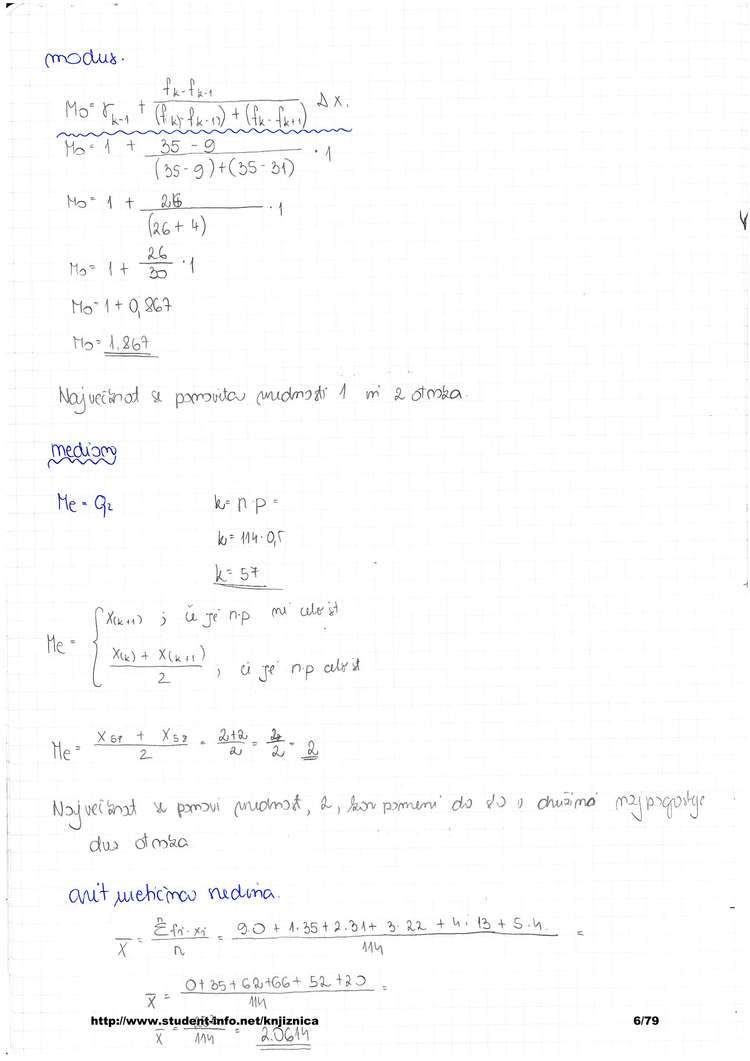 modus.
Mo = x_{k-1} + \frac{f_k - f_{k-1}}{(f_k - f_{k-1}) + (f_k - f_{k+1})} Δx.
Mo = 1 + \frac{35 - 9}{(35-9)+(35-31)} · 1
Mo = 1 + \frac{26}{(26+4)} · 1
Mo = 1 + \frac{26}{30} · 1
Mo = 1 + 0,867
Mo = 1.867
Največkrat se ponovita vrednosti 1 in 2 otroka.
mediana
Me = Q_2
k = n·p =
k = 114·0,5
k = 57
Me = { x_{(k+1)} ; če je n·p ni celo št
\frac{x_{(k)} + x_{(k+1)}}{2} , če je n·p celo št
Me = \frac{x_{57} + x_{58}}{2} = \frac{2+2}{2} = = 2
Največkrat se ponovi vrednost, 2, kar pomeni da so v družina najpogostje
dva otroka
aritmetična sredina.
\overline{x} = \frac{Σ^n f_i · x_i}{n} = \frac{9·0 + 1·35 + 2·31 + 3·22 + 4·13 + 5·4}{114} =
\overline{x} = \frac{0+35+62+66+52+20}{114} =
http://www.student-info.net/knjiznica 6/79
\overline{x} = \frac{}{114} = 2.0614